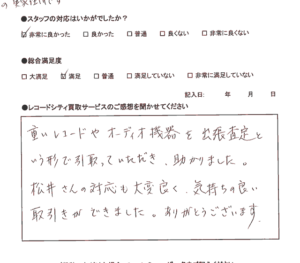 ●スタッフの対応はいかがでしたか？
☑ 非常に良かった □ 良かった □ 普通 □ 良くない □ 非常に良くない
●総合満足度
□ 大満足 ☑ 満足 □ 普通 □ 満足していない □ 非常に満足していない
記入日: 年 月 日
●レコードシティ買取サービスのご感想を聞かせてください
重いレコードやオーディオ機器を出張査定と
いう形で引取っていただき、助かりました。
松井さんの対応も大変良く、気持ちの良い
取引きができました。ありがとうございます。